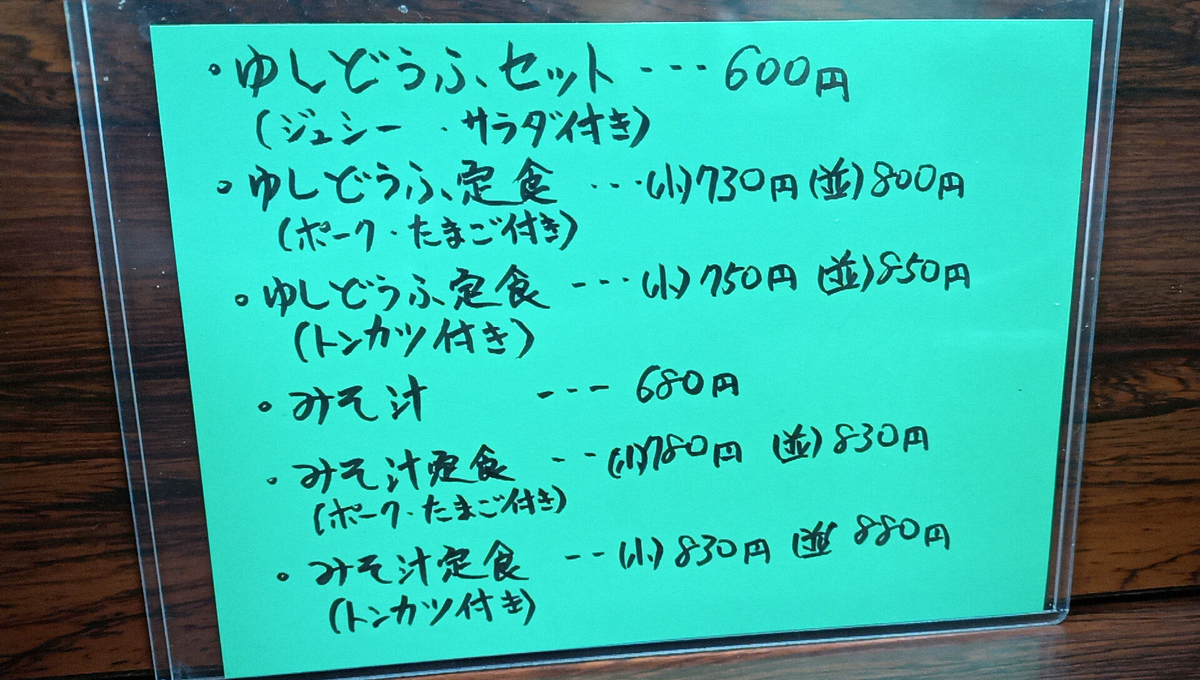 ・ゆしどうふセット --- 600円
(ジューシー ・サラダ付き)
・ゆしどうふ定食 ---(小)730円(並)800円
(ポーク・たまご付き)
・ゆしどうふ定食 ---(小)750円 (並)850円
(トンカツ付き)
・みそ汁 --- 680円
・みそ汁定食 --- (小)780円 (並)830円
(ポーク・たまご付き)
・みそ汁定食 -- (小)830円 (並) 880円
(トンカツ付き)